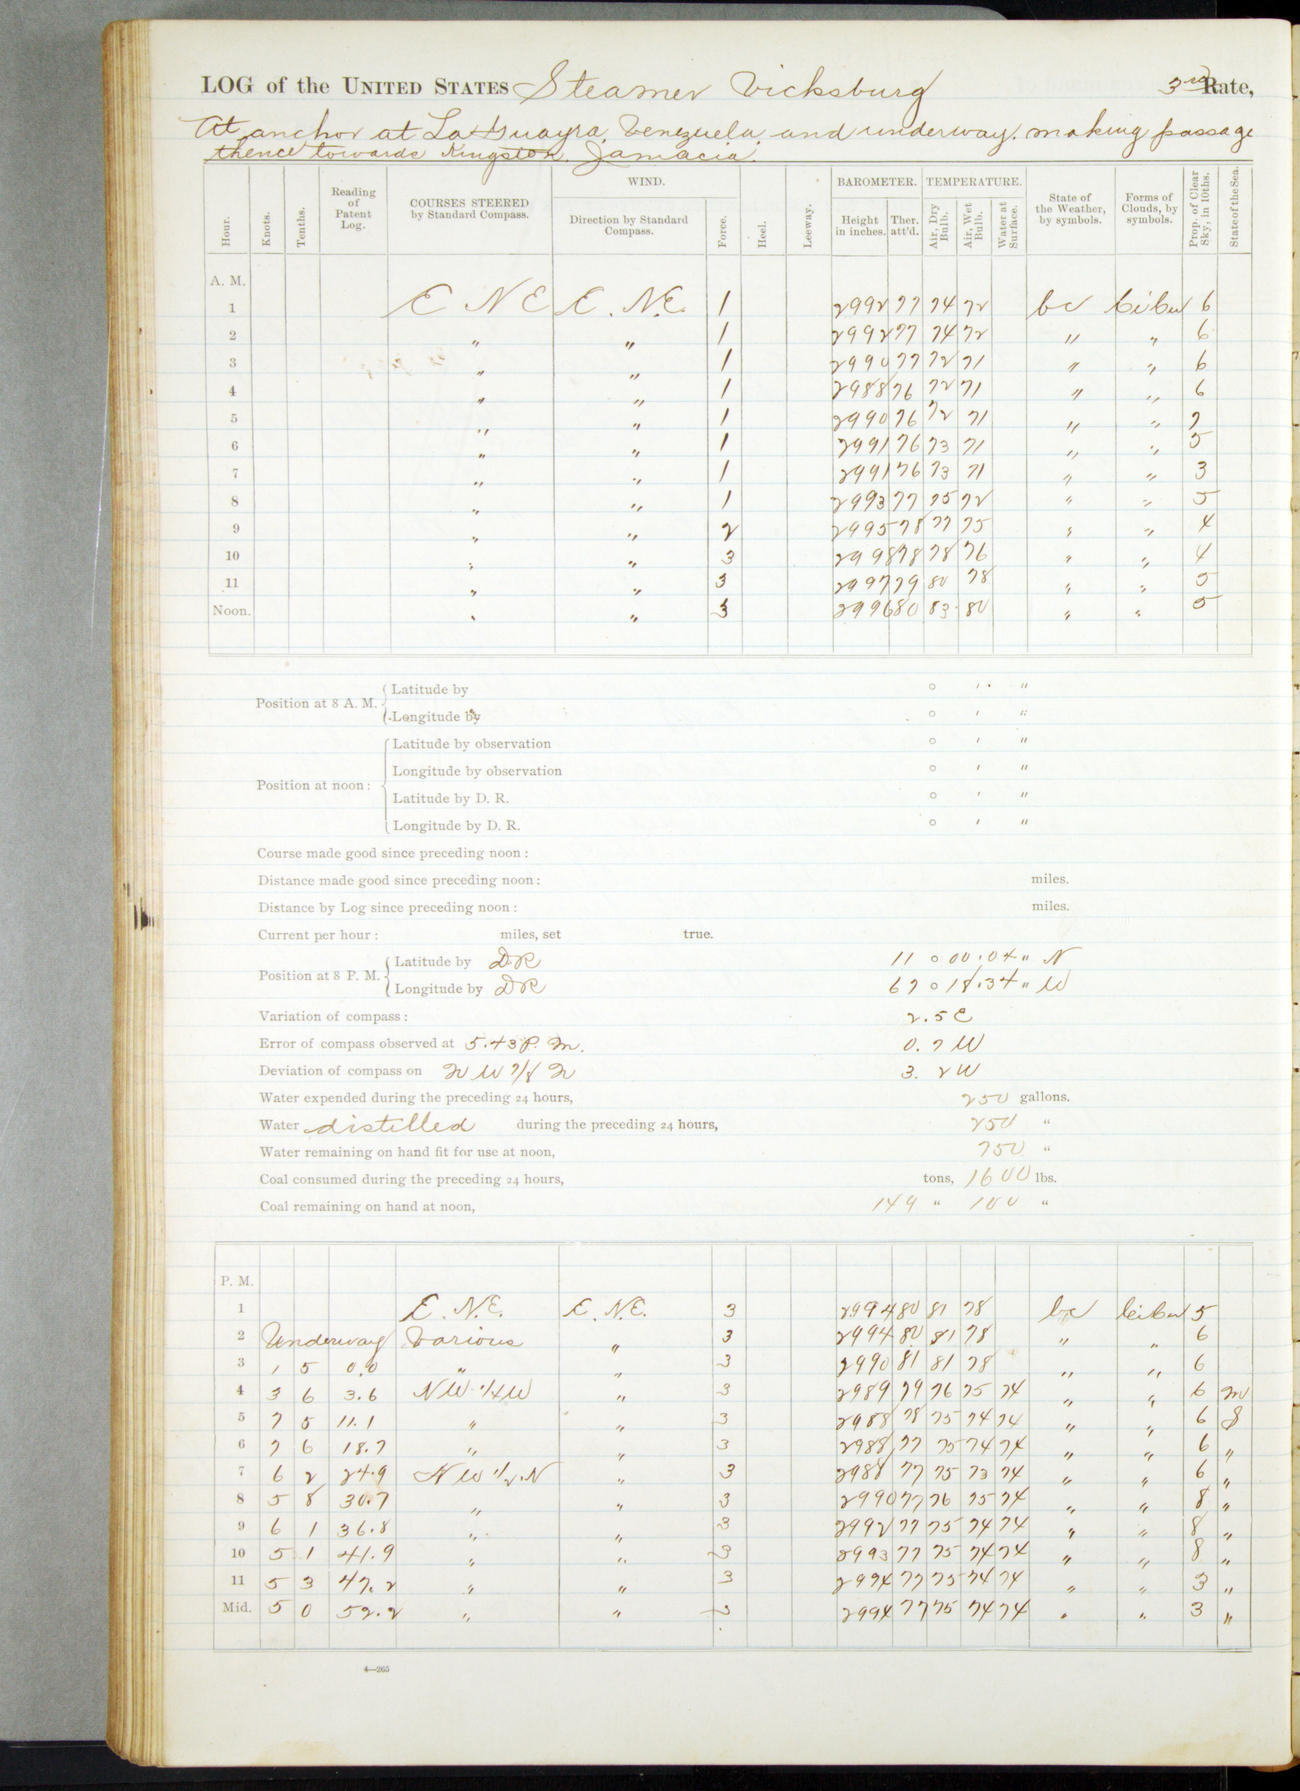 LOG of the UNITED STATES Steamer Vicksburg 3rd Rate,
At anchor at La Guayra, Venezuela, and underway. making passage
thence towards Kingston. Jamacia.
Hour. Knots. Tenths. Reading of Patent Log. COURSES STEERED by Standard Compass. WIND. Direction by Standard Compass. Force. Heel. Leeway. BAROMETER. Height in inches. Ther. att'd. TEMPERATURE. Air, Dry Bulb. Air, Wet Bulb. Water at Surface. State of the Weather, by symbols. Forms of Clouds, by symbols. Prop. of Clear Sky, in 10ths. State of the Sea.
A. M.
1 E N E E. N.E. 1 2992 77 74 72 bc CiCu 6
2 " " 1 2992 77 74 72 " " 6
3 " " 1 2990 77 72 71 " " 6
4 " " 1 2988 76 72 71 " " 6
5 " " 1 2990 76 72 71 " " 7
6 " " 1 2991 76 73 71 " " 5
7 " " 1 2991 76 73 71 " " 3
8 " " 1 2993 77 75 72 " " 5
9 " " 2 2995 78 77 75 " " 4
10 " " 3 2998 78 78 76 " " 4
11 " " 3 2997 79 80 78 " " 5
Noon. " " 3 2996 80 83 80 " " 5
Position at 8 A. M. Latitude by ° ' "
Longitude by ° ' "
Position at noon: Latitude by observation ° ' "
Longitude by observation ° ' "
Latitude by D. R. ° ' "
Longitude by D. R. ° ' "
Course made good since preceding noon:
Distance made good since preceding noon: miles.
Distance by Log since preceding noon: miles.
Current per hour: miles, set true.
Position at 8 P. M. Latitude by DR 11 ° 00 ' 04 " N
Longitude by DR 67 ° 18 ' 34 " W
Variation of compass: 2.5 E
Error of compass observed at 5.43 P. M. 0.7 W
Deviation of compass on N W 7/8 N 3.2 W
Water expended during the preceding 24 hours, 250 gallons.
Water distilled during the preceding 24 hours, 250 "
Water remaining on hand fit for use at noon, 750 "
Coal consumed during the preceding 24 hours, tons, 1600 lbs.
Coal remaining on hand at noon, 149 " 100 "
P. M.
1 E. N.E. E. N.E. 3 2994 80 81 78 bc CiCu 5
2 Underway Various " 3 2994 80 81 78 " " 6
3 1 5 0.0 " " 3 2990 81 81 78 " " 6
4 3 6 3.6 NW 1/4 W " 3 2989 79 76 75 74 " " 6 M
5 7 5 11.1 " " 3 2988 78 75 74 74 " " 6 S
6 7 6 18.7 " " 3 2988 77 75 74 74 " " 6 "
7 6 2 24.9 NW 1/2 N " 3 2988 77 75 73 74 " " 6 "
8 5 8 30.7 " " 3 2990 77 76 75 74 " " 8 "
9 6 1 36.8 " " 3 2992 77 75 74 74 " " 8 "
10 5 1 41.9 " " 3 2993 77 75 74 74 " " 8 "
11 5 3 47.2 " " 3 2994 77 75 74 74 " " 3 "
Mid. 5 0 52.2 " " 3 2994 77 75 74 74 " " 3 "
4—265